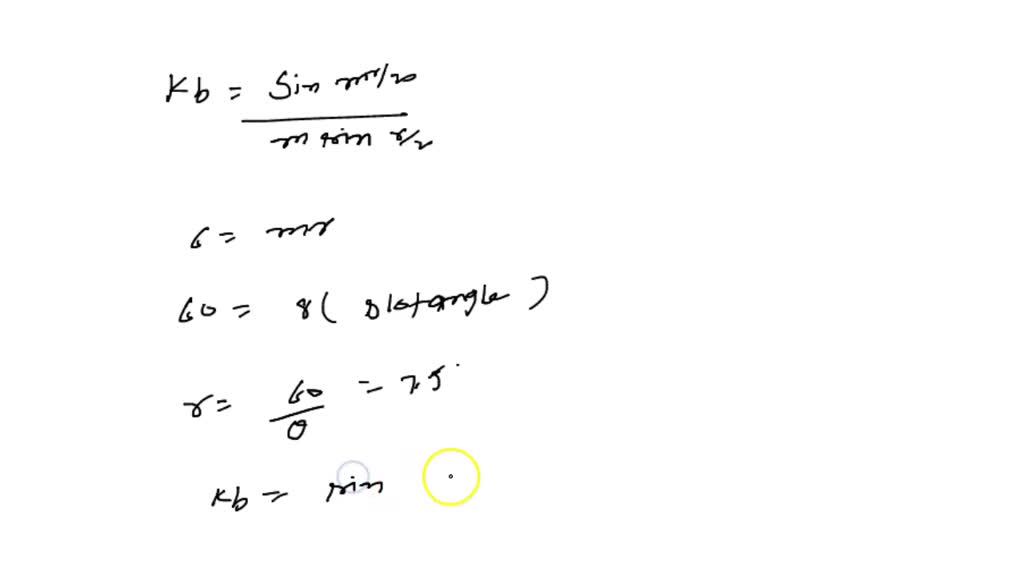 Kb = Sin mr/20
m sin r/2
6 = mr
60 = 8 ( slotangle )
r = 60 / 0 = 7.5
Kb = sin